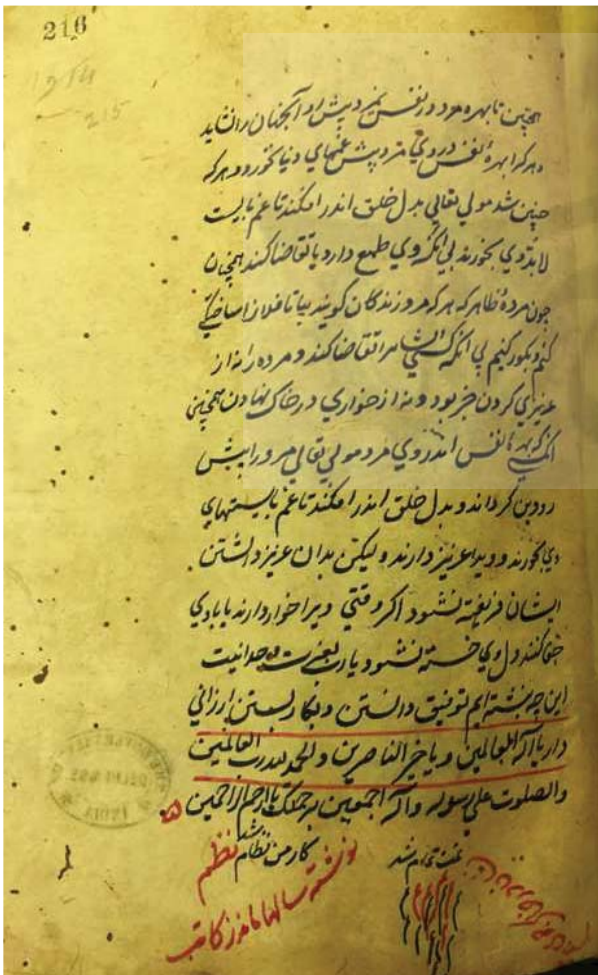 216
1214
215
همچنین تا بهره مود در نفس نمرد پیش او آنجهان را نشاید
و هر کرا بهرهٔ نفس در وی مرد پیش غمهای دنیا نخورد و هر که
چنین شد مولی تعالی بدل خلق اندر افکند تا غم بایست
لابدّ وی بخورند بی آنکه وی طمع دارد یا تقاضا کند همچنان
چون مردهٔ ظاهر که هر که مرد زندگان گویند بیا تا فلانرا ساختگی
کنیم و بگور کنیم بی آنکه کسی ایشان را تقاضا کند و مرده را نه از
عزیزی کردن خبر بود و نه از خواری در خاک نهادن همچنین
آنکسی که بهرهٔ نفس اندر وی مرد مولی تعالی مرو را پیش
رو دین گرداند و بدل خلق اندر افکند تا غم بایستهای
وی بخورند و ویرا عزیز دارند و لیکن بدان عزیز داشتن
ایشان فریفته نشود اگر وقتی ویرا خوار دارند یا با وی
جفا کنند دل وی خسته نشود یارب بعزت وحدانیت
این چه نبشته ایم توفیق دانستن و بکار بستن ارزانی
دار یا اله العالمین و یا خیر الناصرین و الحمد لله رب العالمین
والصلوت علی رسوله و آله اجمعین برحمتک یا ارحم الراحمین
تمت تمام شد کار من نظام شد
نوشته سالها ماند ز کاتب
INDIA